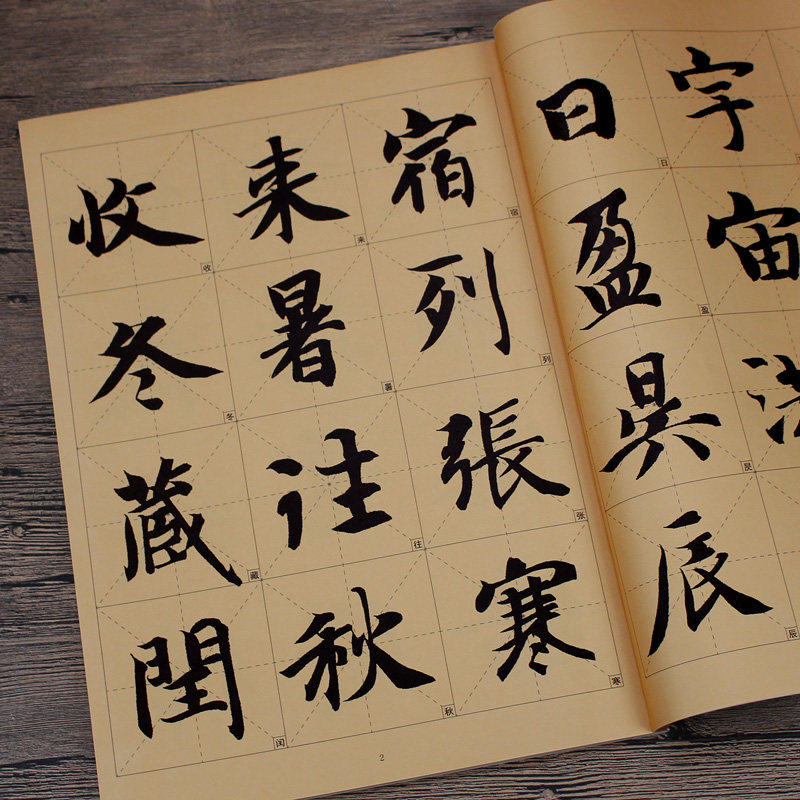 宇
宙
日
日
盈
盈
昃
昃
辰
辰
宿
宿
列
列
張
张
寒
寒
来
来
暑
暑
往
往
秋
秋
收
收
冬
冬
藏
藏
閏
闰
2